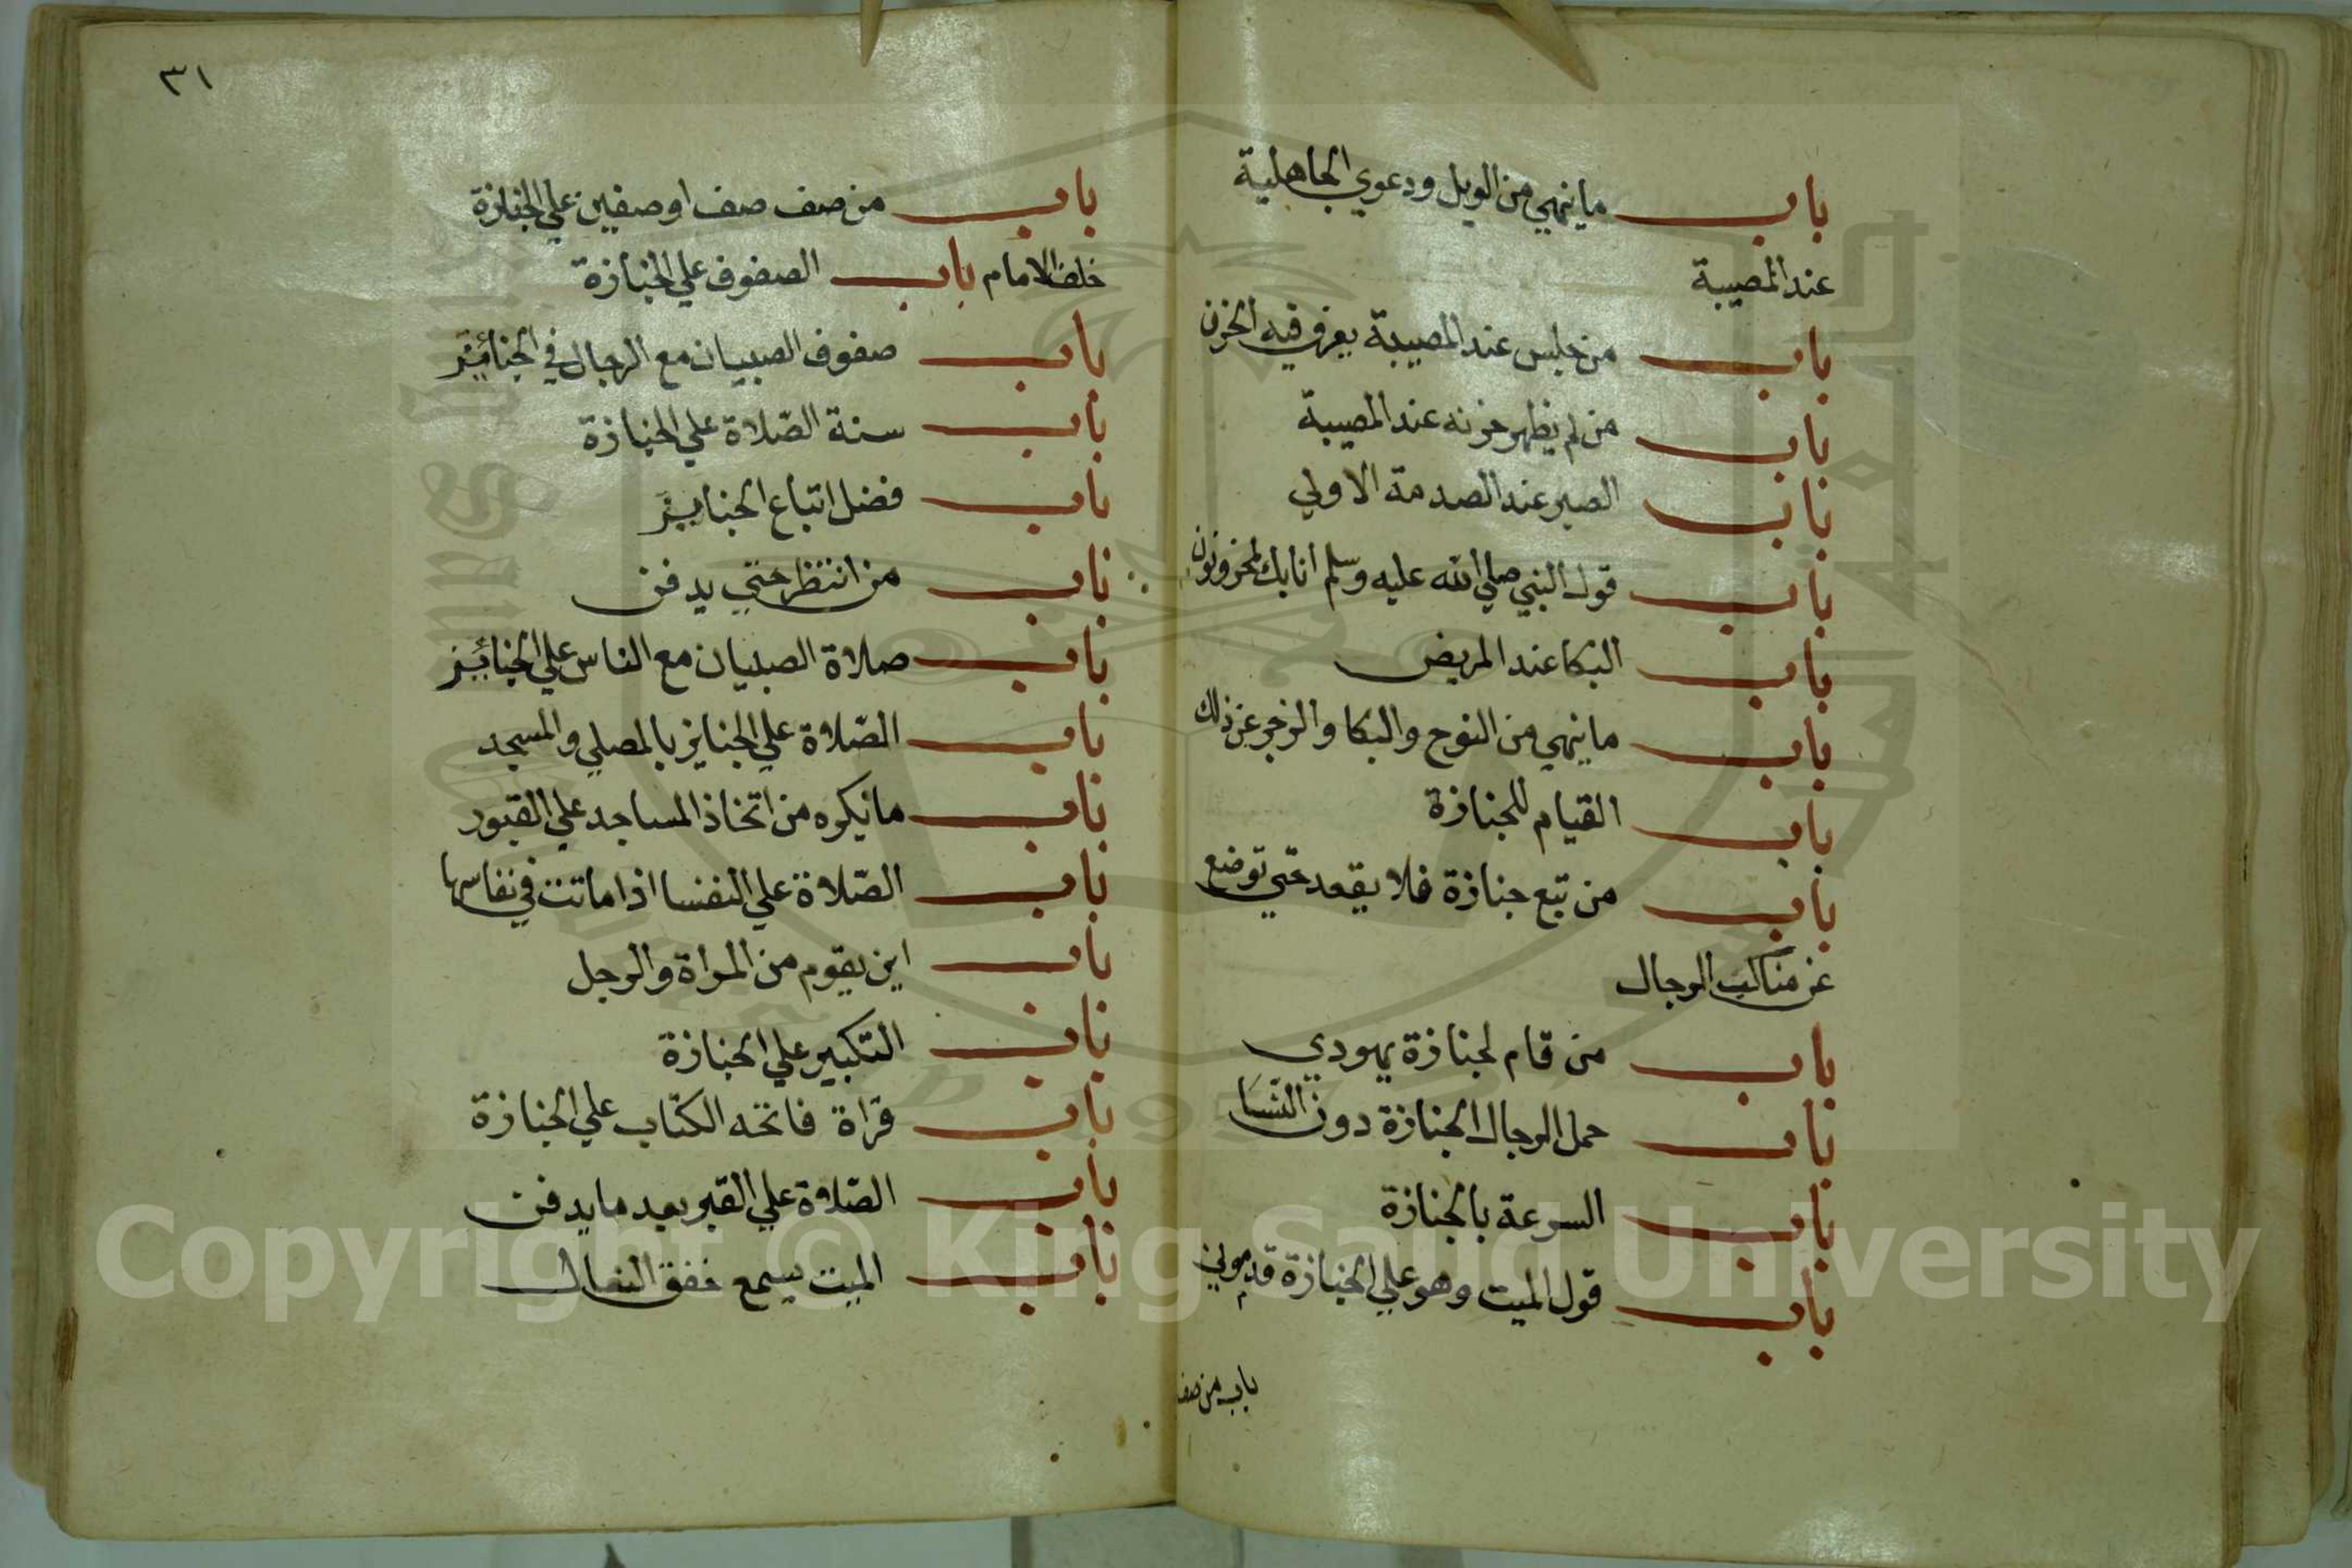 باب ما ينهي من الويل ودعوي الجاهلية
عند المصيبة
باب من جلس عند المصيبة يعرف فيه الحزن
باب من لم يظهر حزنه عند المصيبة
باب الصبر عند الصدمة الاولي
باب قول النبي صلي الله عليه وسلم انا بك لمحزونون
باب البكا عند المريض
باب ما ينهي من النوح والبكا والزجر عن ذلك
باب القيام للجنازة
باب من تبع جنازة فلا يقعد حتي توضع
عن مناكب الرجال
باب من قام لجنازة يهودي
باب حمل الرجال الجنازة دون النسا
باب السرعة بالجنازة
باب قول الميت وهو علي الجنازة قدموني
باب من صف
٣١
باب من صف صف او صفين علي الجنازة
خلف الامام باب الصفوف علي الجنازة
باب صفوف الصبيان مع الرجال في الجنائز
باب سنة الصّلاة علي الجنازة
باب فضل اتباع الجنايز
باب من انتظر حتي يدفن
باب صلاة الصبيان مع الناس علي الجنائز
باب الصّلاة علي الجنايز بالمصلي والمسجد
باب ما يكره من اتخاذ المساجد علي القبور
باب الصّلاة علي النفسا اذا ماتت في نفاسها
باب اين يقوم من المراة والرجل
باب التكبير علي الجنازة
باب قراة فاتحه الكتاب علي الجنازة
باب الصّلاة علي القبر بعد ما يدفن
باب الميت يسمع خفق النعال
Copyright © King Saud University